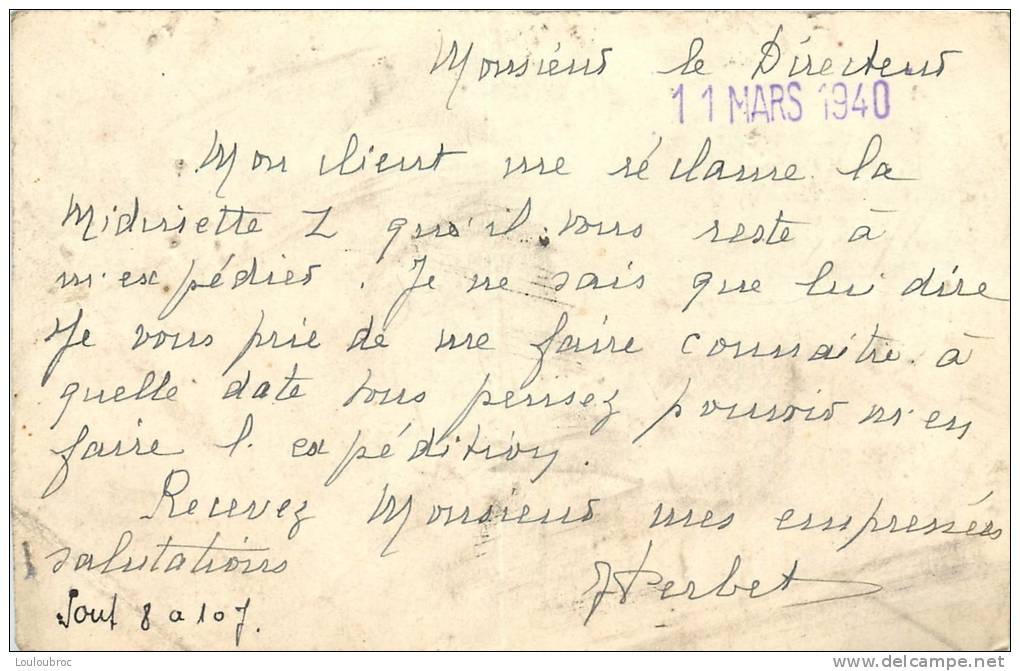 Monsieur le Directeur
11 MARS 1940
Mon client me réclame la
Midinette Z qu'il vous reste à
m'expédier. Je ne sais que lui dire
Je vous prie de me faire connaitre à
quelle date vous pensez pouvoir m'en
faire l'expédition.
Recevez Monsieur mes empressées
salutations
Perbet
8 a 10 j.
Louloubroc
delcampe.net